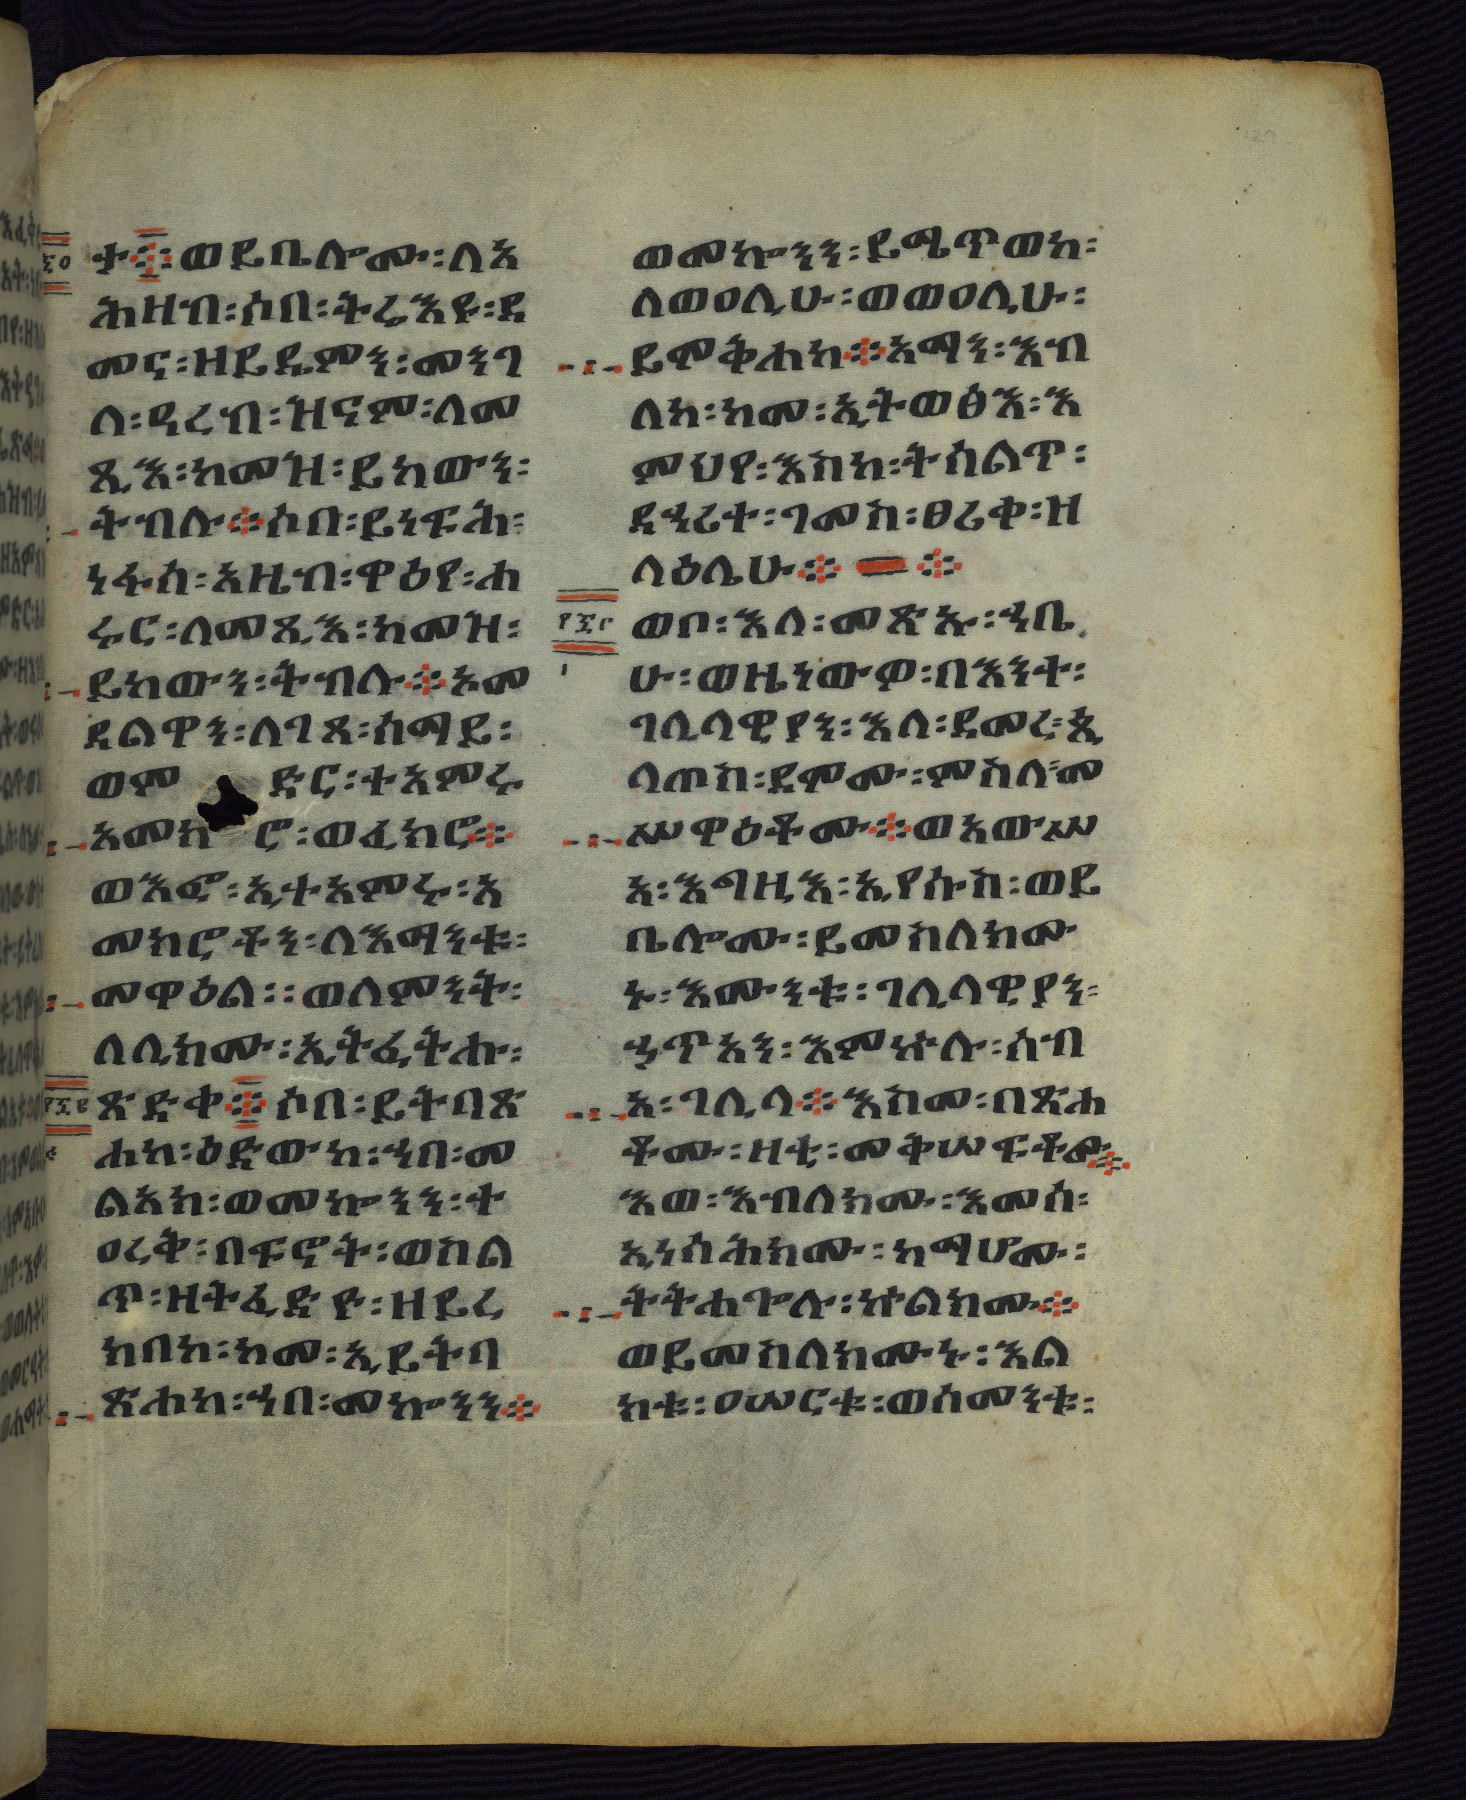 ቶ፨ወይቤሎሙ፡ለአ
ሕዛብ፡ሶበ፡ትሬእዩ፡ደ
መና፡ዘይዴምን፡መንገ
ለ፡ዓረብ፡ዝናም፡ለመ
ጺእ፡ከመዝ፡ይከውን፡
ትብሉ፨ሶበ፡ይነፍሕ፡
ነፋስ፡አዜብ፡ዋዕየ፡ሐ
ሩር፡ለመጺእ፡ከመዝ፡
ይከውን፡ትብሉ፨ኦመ
ደልዋን፡ለገጸ፡ሰማይ፡
ወምድር፡ተአምሩ
አመክሮ፡ወፈክሮ፨
ወእፎ፡ኢተአምሩ፡አ
መክሮቶን፡ለእማንቱ፡
መዋዕል፡፡ወለምንት፡
ለሊክሙ፡ኢትፈትሑ፡
ጽድቀ፨ሶበ፡ይትባጽ
ሐከ፡ዕድውከ፡ኀበ፡መ
ልአክ፡ወመኰንን፡ተ
ዐረቅ፡በፍኖት፡ወስል
ጥ፡ዘትፈድዮ፡ዘይረ
ክበከ፡ከመ፡ኢይትባ
ጽሐከ፡ኀበ፡መኰንን፨
ወመኰንን፡ይሜጥወከ፡
ለወዐሊሁ፡ወወዐሊሁ፡
ይሞቅሐከ፨አማን፡እብ
ለከ፡ከመ፡ኢትወፅእ፡እ
ምህየ፡እስከ፡ትሰልጥ፡
ደኃሪተ፡ገመስ፡ፀሪቀ፡ዘ
ላዕሌሁ፨፨
፲፮፫
ወቦ፡እለ፡መጽኡ፡ኀቤ
ሁ፡ወዜነውዎ፡በእንተ፡
ገሊላዊያን፡እለ፡ደመረ፡ጲ
ላጦስ፡ደሞሙ፡ምስለ፡መ
ሥዋዕቶሙ፨ወአውሥ
አ፡እግዚእ፡ኢየሱስ፡ወይ
ቤሎሙ፡ይመስለክሙ
ኑ፡እሙንቱ፡ገሊላዊያን፡
ኃጥአን፡እምኵሉ፡ሰብ
አ፡ገሊላ፨እስመ፡በጽሐ
ቶሙ፡ዛቲ፡መቅሠፍቶሙ፨
እወ፡እብለክሙ፡እመሰ፡
ኢነሳሕክሙ፡ከማሆሙ፡
ትትሐጐሉ፡ኵልክሙ፨
ወይመስለክሙኑ፡እል
ክቱ፡ዐሠርቱ፡ወሰመንቱ፡